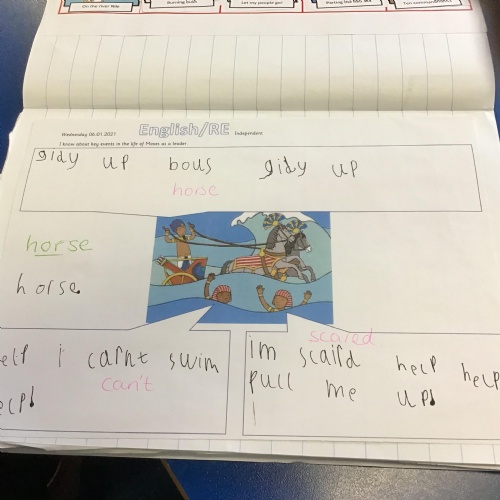 On the river Nile
Burning bush
Let my people go!
Parting the Red Sea
Ten commandments
Wednesday 06.01.2021 English/RE Independent
I know about key events in the life of Moses as a leader.
gidy up bous gidy up
horse
horse
horse
help i carnt swim
can't
help!
scared
im scaird help help
pull me up!